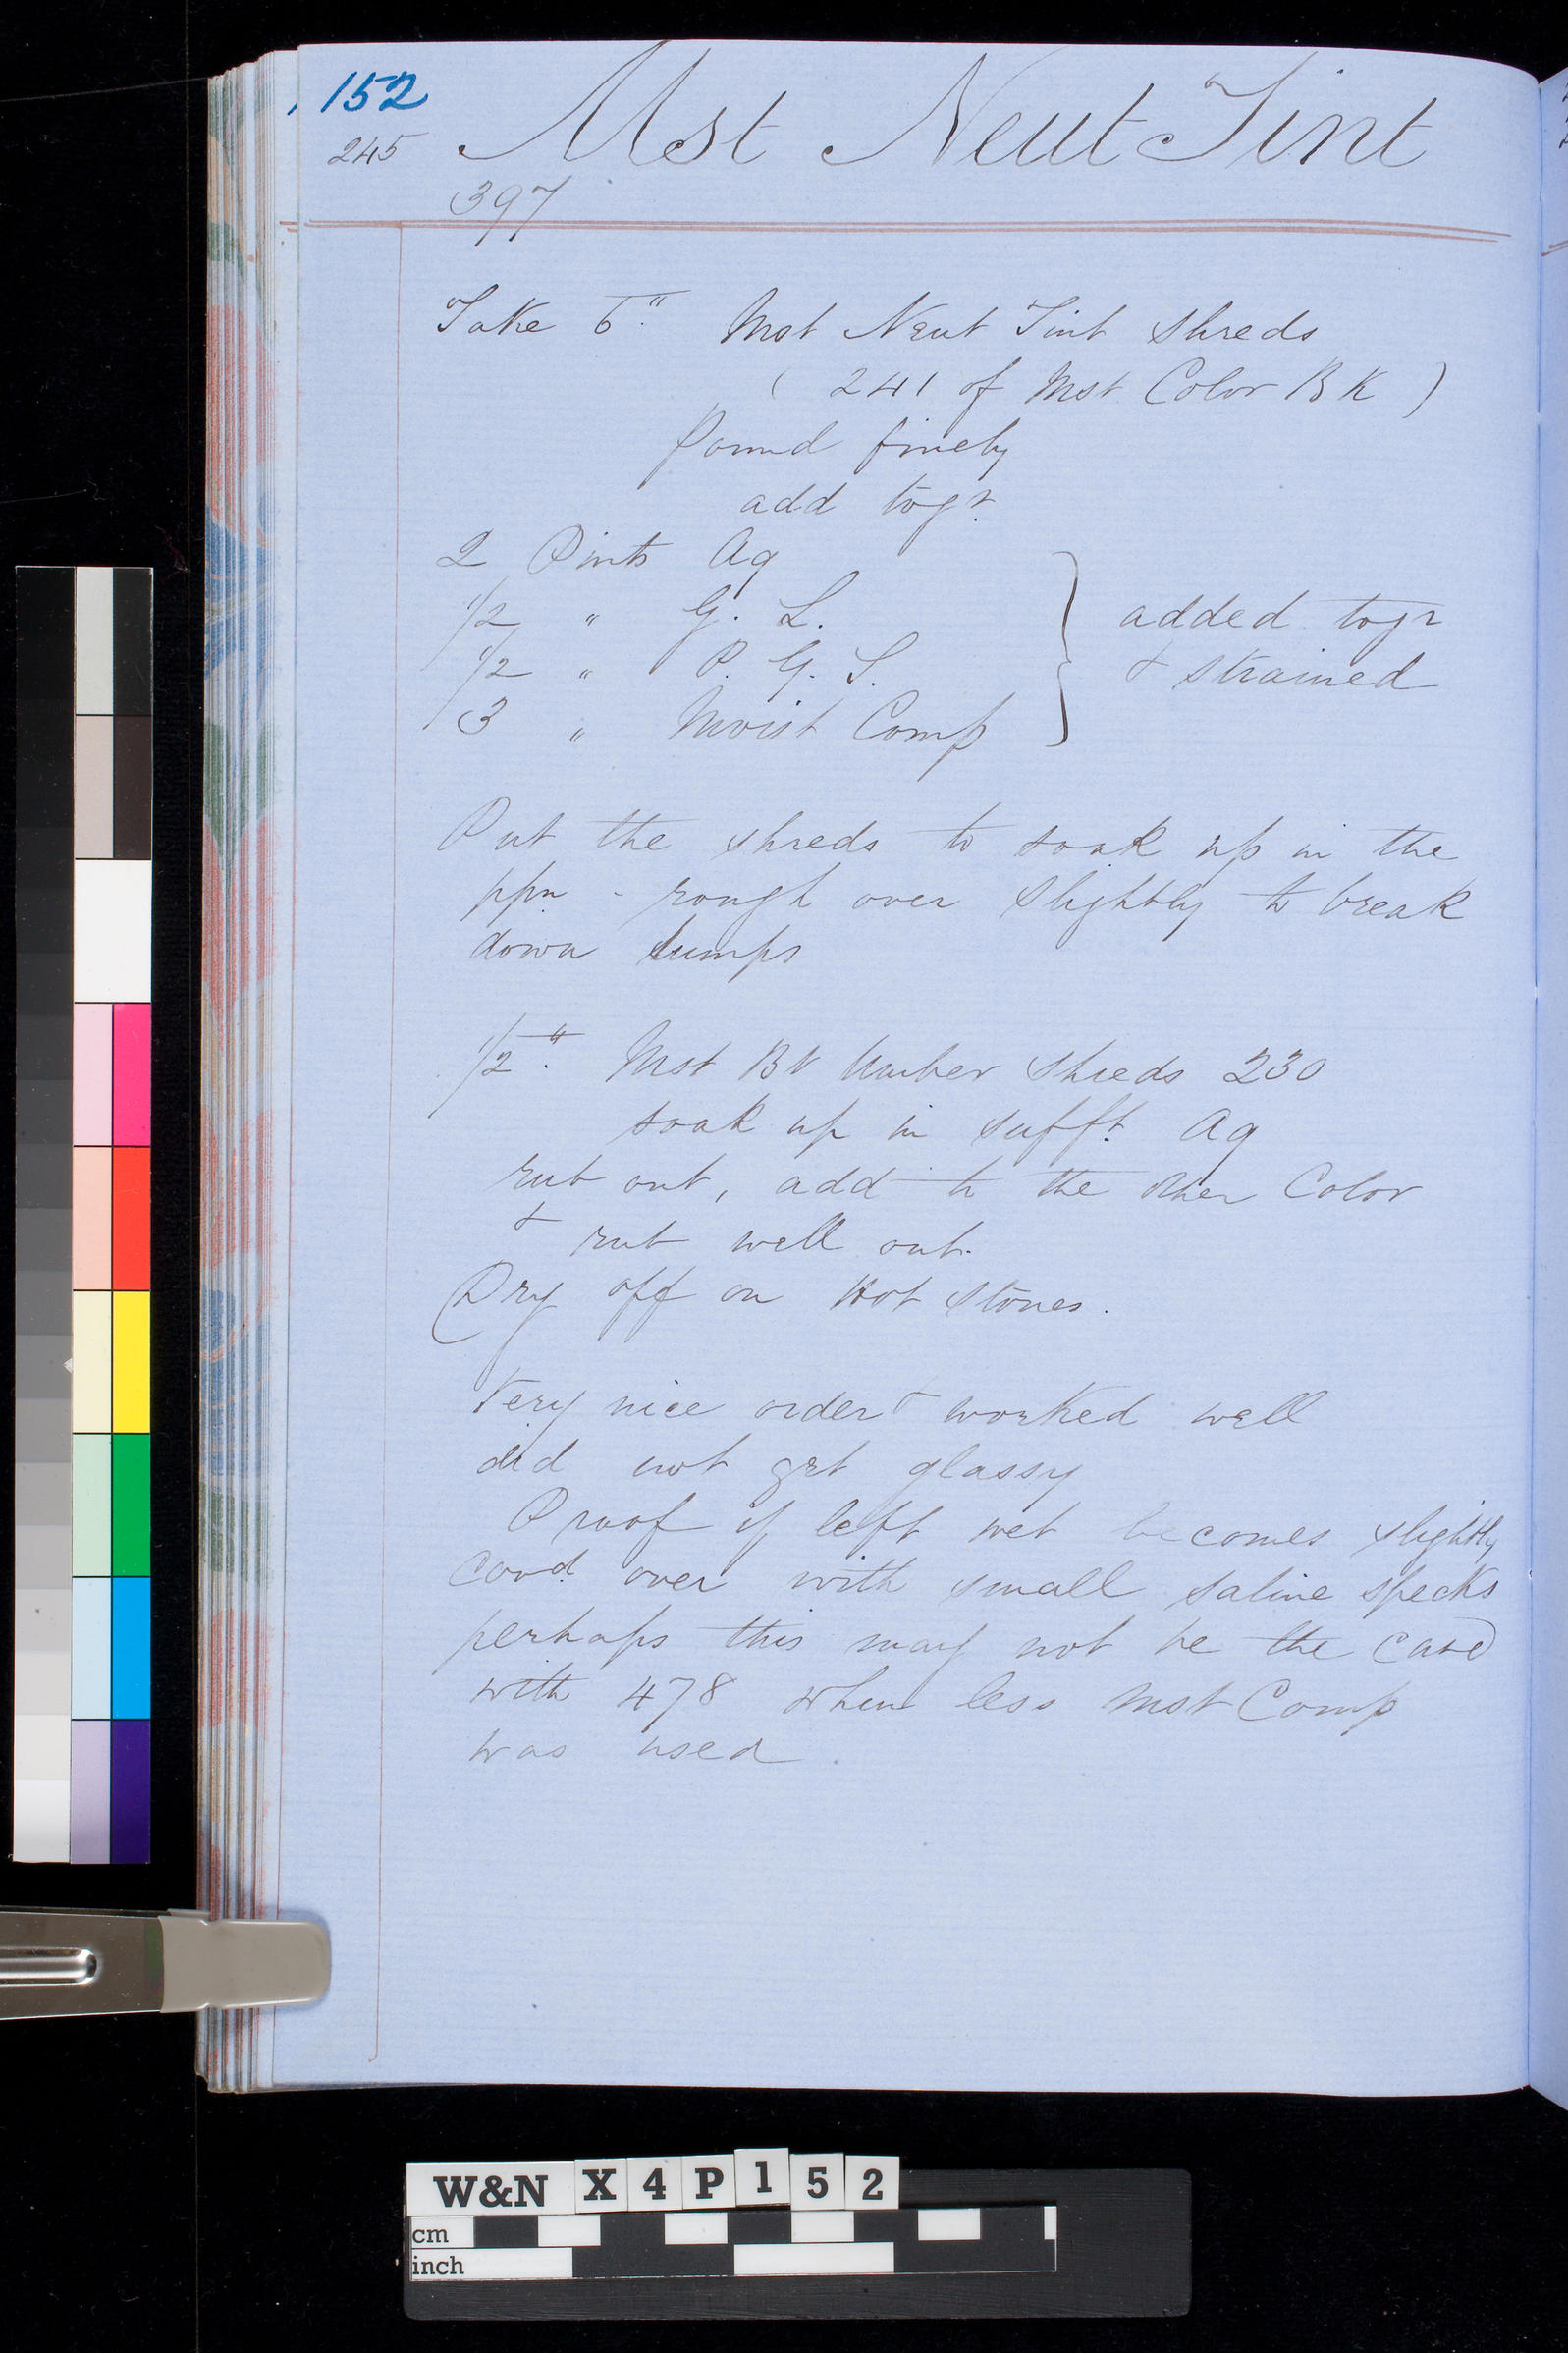 152
245 Mst Neut Tint
397
Take 6." Mst Neut Tint Shreds
( 241 of Mst Color BK )
Pound finely
add togr.
2 Pints Aq
1/2 " G. L.
1/2 " P. G. S.
3 " Moist Comp
added togr
& strained
Put the shreds to soak up in the
ppn - rough over slightly to break
down lumps
1/2." Mst Bt Umber Shreds 230
soak up in sufft. Aq
rub out, add to the other Color
& rub well out.
Dry off on Hot Stones.
Very nice order & worked well
did not get glassy
Proof if left wet becomes slightly
covd. over with small saline specks
perhaps this may not be the case
with 478 when less Mst Comp
was used.
W&N X 4 P 1 5 2
cm
inch